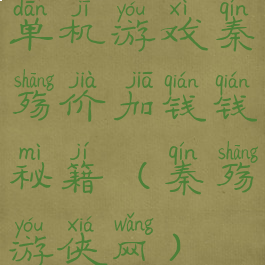 dān jī yóu xì qín
单机游戏秦
shāng jià jiā qián qián
殇价加钱钱
mì jí qín shāng
秘籍(秦殇
yóu xiá wǎng
游侠网)